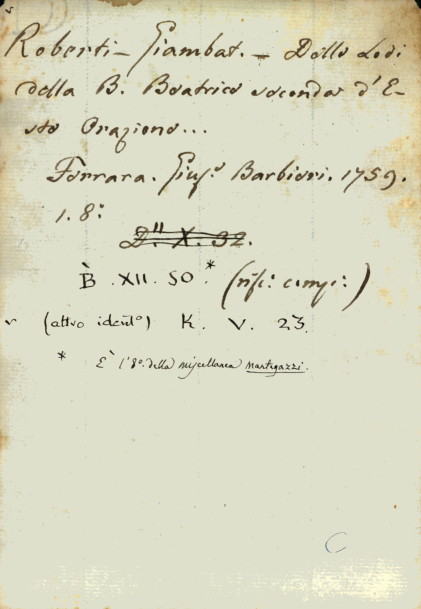 Roberti - Giambat. - Delle Lodi
della B. Beatrice seconda d'E-
ste Orazione...
Ferrara. Gius.e Barbieri. 1759.
1. 8.°
D." X. 32.
B̀ . XII . 50 . * (
(altro ident.o) K. V. 23
* E' l'8.o della miscellanea Mantegazzi.
C